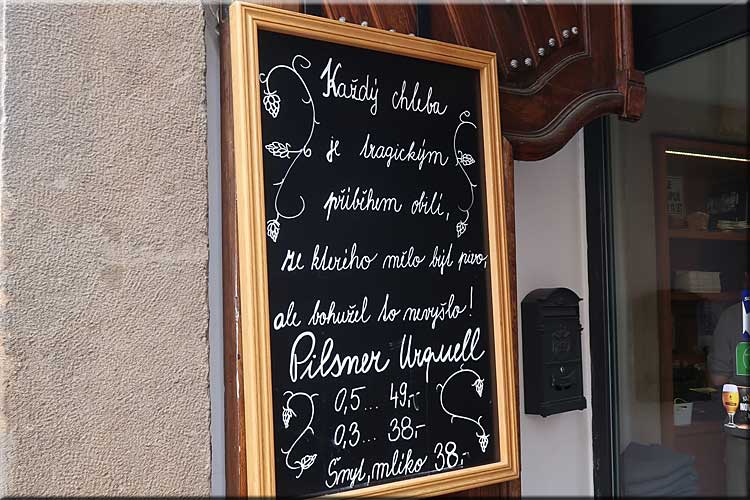 Každý chleba
je tragickým
příběhem obilí,
ze kterého mělo být pivo,
ale bohužel to nevyšlo!
Pilsner Urquell
0,5... 49,-
0,3... 38,-
Šnyt, mlíko 38,-